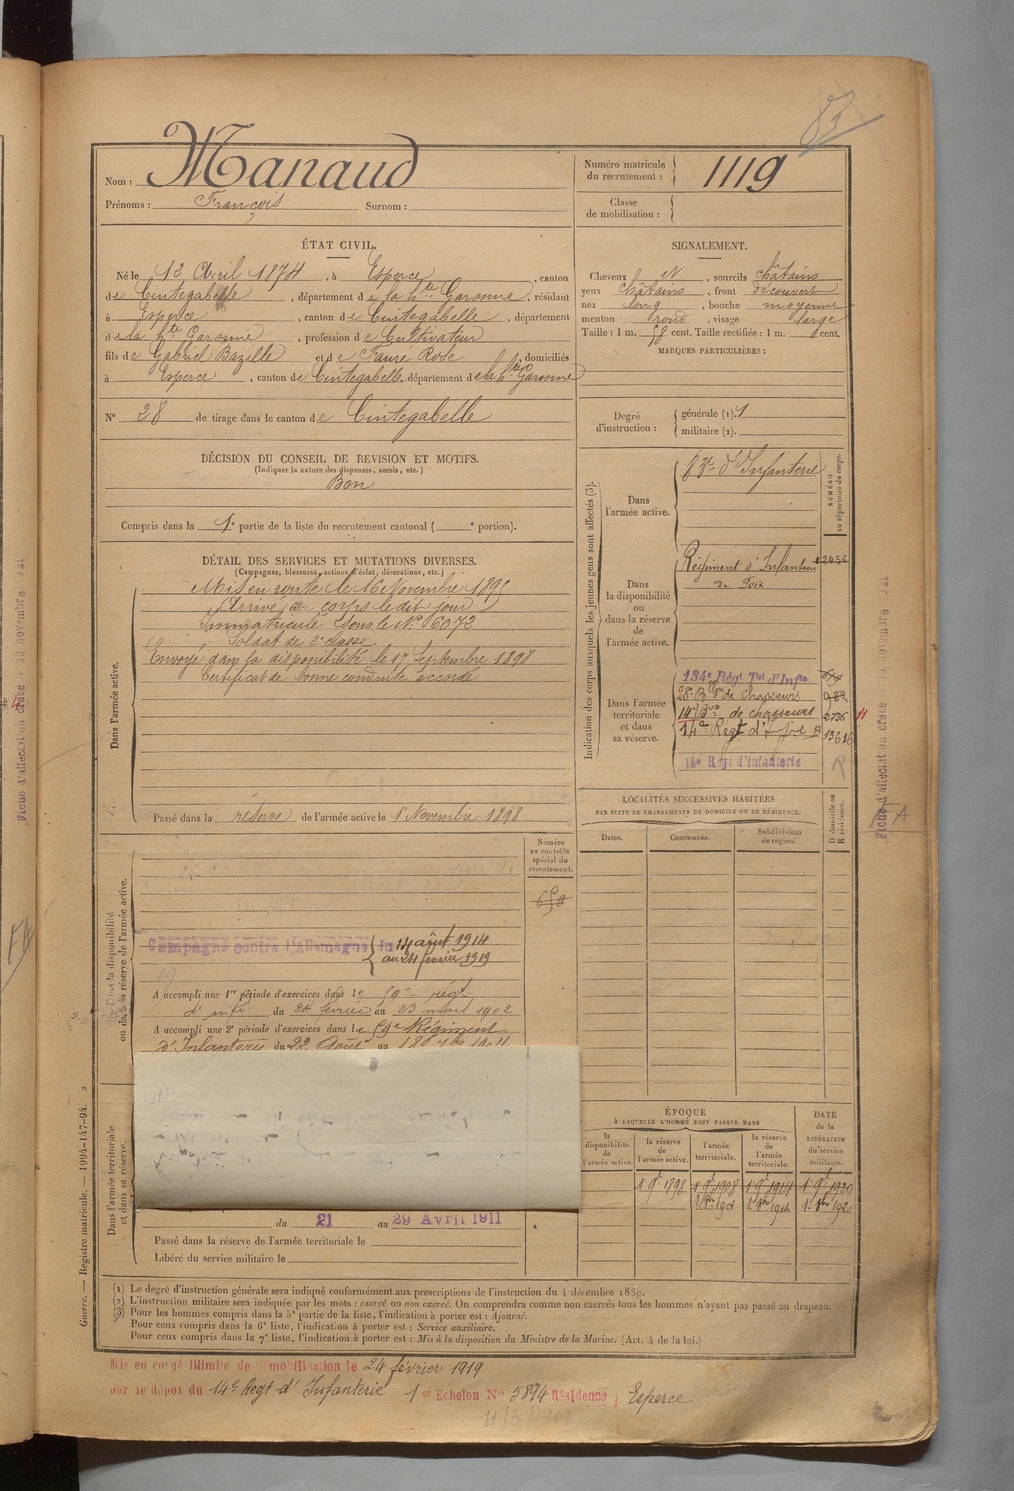 Nom : Manaud
Prénoms : François Surnom :
Numéro matricule
du recrutement : 1119
Classe
de mobilisation :
ÉTAT CIVIL.
Né le 13 Avril 1874, à Esperce, canton
de Cintegabelle, département de la hte Garonne, résidant
à Esperce, canton de Cintegabelle, département
de la hte Garonne, profession de Cultivateur
fils de Gabriel Bazille et de Faure Rose, domiciliés
à Esperce, canton de Cintegabelle, département de la hte Garonne
N° 28 de tirage dans le canton de Cintegabelle
SIGNALEMENT.
Cheveux N, sourcils châtains
yeux châtains, front découvert
nez long, bouche moyenne
menton rond, visage large
Taille : 1 m. 58 cent. Taille rectifiée : 1 m. cent.
MARQUES PARTICULIÈRES :
Degré
d'instruction :
générale (1). 1
militaire (2).
DÉCISION DU CONSEIL DE REVISION ET MOTIFS.
(Indiquer la nature des dispenses, sursis, etc.)
Bon
Compris dans la 1e partie de la liste du recrutement cantonal ( e portion).
DÉTAIL DES SERVICES ET MUTATIONS DIVERSES.
(Campagnes, blessures, actions d'éclat, décorations, etc.)
Dans l'armée active.
Mis en route le 16 Novembre 1895
Arrivé au corps le dit jour
Immatriculé sous le N° 6072
Soldat de 2e classe
Envoyé dans la disponibilité le 17 Septembre 1898
Certificat de bonne conduite accordé
Passé dans la réserve de l'armée active le 1er Novembre 1898
Indication des corps auxquels les jeunes gens sont affectés (3).
NUMÉRO
au répertoire du corps.
Dans
l'armée active.
d'Infanterie
Dans
la disponibilité
ou
dans la réserve
de
l'armée active.
Régiment d'Infanterie
de Foix
Dans l'armée
territoriale
et dans
sa réserve.
134e Régt Tal d'Infie
28e Bon de Chasseurs
14e Bon de chasseurs 2736
14e Régt d'Infie
14e Régt d'Infanterie
LOCALITÉS SUCCESSIVES HABITÉES
PAR SUITE DE CHANGEMENTS DE DOMICILE OU DE RÉSIDENCE.
Dates. Communes. Subdivisions
de région.
D domicile ou
R résidence.
Dans la disponibilité
ou dans la réserve de l'armée active.
Numéro
au contrôle
spécial du
recrutement.
650
Campagne contre l'Allemagne du 14 août 1914
au 24 février 1919
A accompli une 1re période d'exercices dans le 59e régt
d'inf. du 24 février au 23 mars 1902
A accompli une 2e période d'exercices dans le 59e Régiment
d'Infanterie du 22 Août au
Dans l'armée territoriale
et dans sa réserve.
du 21 au 29 Avril 1911
Passé dans la réserve de l'armée territoriale le
Libéré du service militaire le
ÉPOQUE
À LAQUELLE L'HOMME DOIT PASSER DANS
la
disponibilité
de
l'armée active.
la réserve
de
l'armée active.
l'armée
territoriale.
la réserve
de
l'armée
territoriale.
DATE
de la
LIBÉRATION
du service
militaire.
1 9bre 1898 1 9bre 1908 1 9bre 1914 1 9bre 1920
(1) Le degré d'instruction générale sera indiqué conformément aux prescriptions de l'instruction du 4 décembre 1889.
(2) L'instruction militaire sera indiquée par les mots : exercé ou non exercé. On comprendra comme non exercés tous les hommes n'ayant pas passé au drapeau.
(3) Pour les hommes compris dans la 5e partie de la liste, l'indication à porter est : Ajourné.
Pour ceux compris dans la 6e liste, l'indication à porter est : Service auxiliaire.
Pour ceux compris dans la 7e liste, l'indication à porter est : Mis à la disposition du Ministre de la Marine. (Art. 4 de la loi.)
Mis en congé illimité de démobilisation le 24 février 1919
par le dépôt du 14e Régt d'Infanterie 1er Echelon N° 5894 Résidence, Esperce
Guerre. — Registre matricule. — 1004-147-94. 2